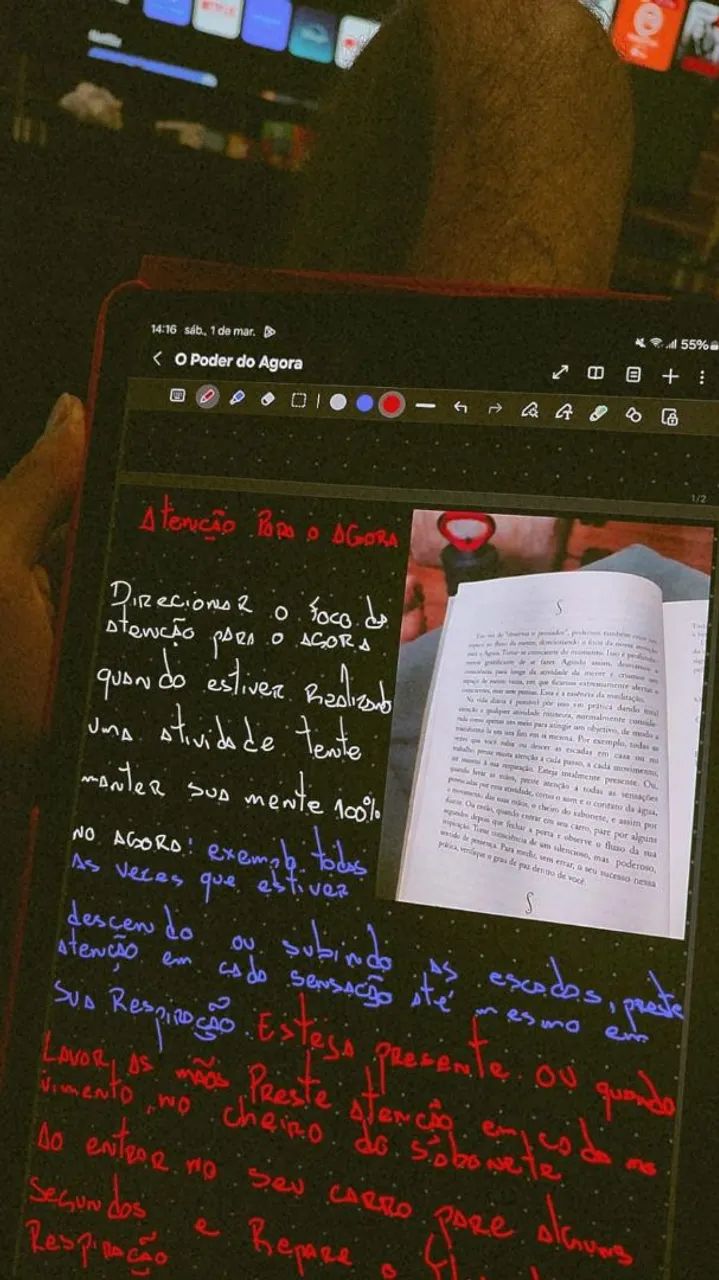 14:16 sáb., 1 de mar.
55%
O Poder do Agora
1/2
Atenção Para o AGORA
Direcionar o foco de
atenção para o AGORA
quando estiver Realizando
uma atividade tente
manter sua mente 100%
no AGORA: exemplo, todas
as vezes que estiver
descendo ou subindo as escadas, preste
atenção em cada sensação até mesmo em
sua Respiração. Esteja presente. OU quando
Lavar as mãos Preste Atenção em cada mo
vimento, no cheiro do sabonete
Ao entrar no seu carro pare alguns
segundos e Repare o
Respiração
§
Em vez de "observar o pensador", podemos também criar um
espaço no fluxo da mente, direcionando o foco da nossa atenção
para o Agora. Torne-se consciente do momento. Isso é profunda-
mente gratificante de se fazer. Agindo assim, desviamos a
consciência para longe da atividade da mente e criamos um
espaço de mente vazia, em que ficamos extremamente alertas e
conscientes, mas sem pensar. Essa é a essência da meditação.
Na vida diária é possível pôr isso em prática dando total
atenção a qualquer atividade rotineira, normalmente conside-
rada como apenas um meio para atingir um objetivo, de modo a
transformá-la em um fim em si mesma. Por exemplo, todas as
vezes que você subir ou descer as escadas em casa ou no
trabalho, preste muita atenção a cada passo, a cada movimento,
até mesmo à sua respiração. Esteja totalmente presente. Ou,
quando lavar as mãos, preste atenção a todas as sensações
provocadas por essa atividade, como o som e o contato da água,
o movimento das suas mãos, o cheiro do sabonete, e assim por
diante. Ou então, quando entrar em seu carro, pare por alguns
segundos depois que fechar a porta e observe o fluxo da sua
respiração. Tome consciência de um silencioso, mas poderoso,
sentido de presença. Para medir, sem errar, o seu sucesso nessa
prática, verifique o grau de paz dentro de você.
§